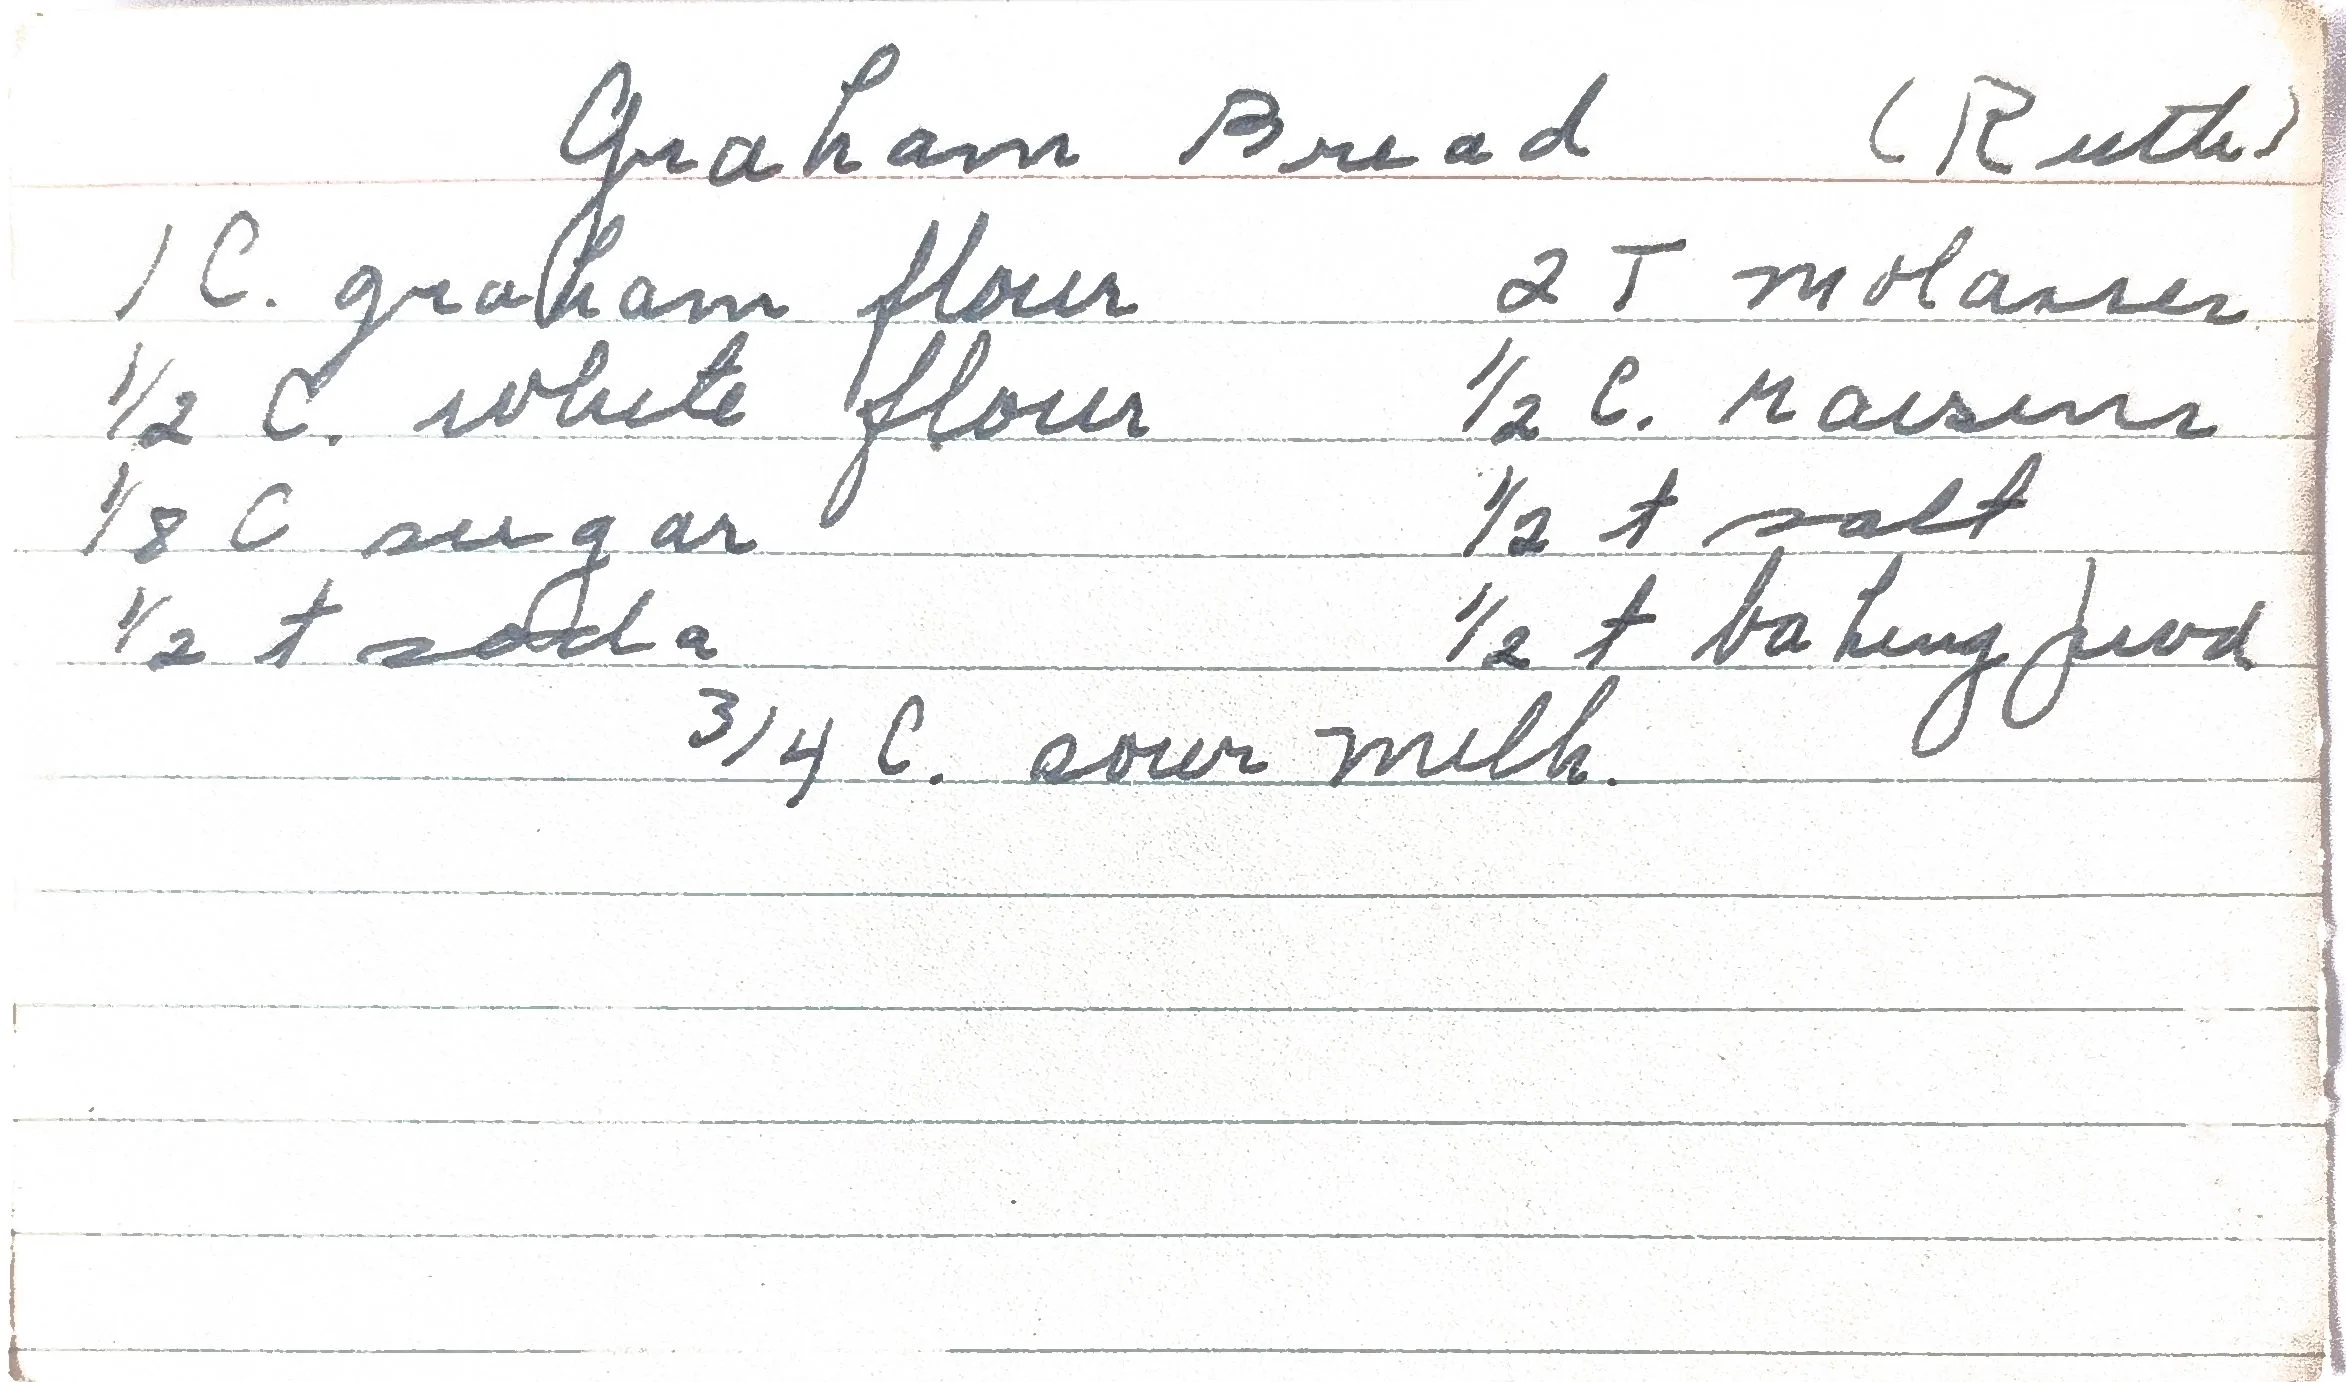 Graham Bread (Ruth)
1 C. graham flour 2 T molasses
1/2 C. white flour 1/2 C. raisins
1/8 C sugar 1/2 t salt
1/2 t soda 1/2 t baking pwd
3/4 C. sour milk.